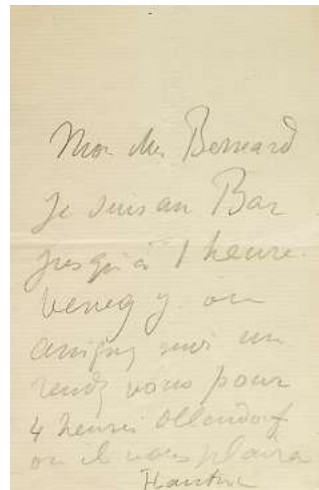 Mon cher Bernard
Je suis au Bar
jusqu'à 1 heure.
Venez y ou
assignez moi un
rendez vous pour
4 heures Ollendorf
ou il vous plaira